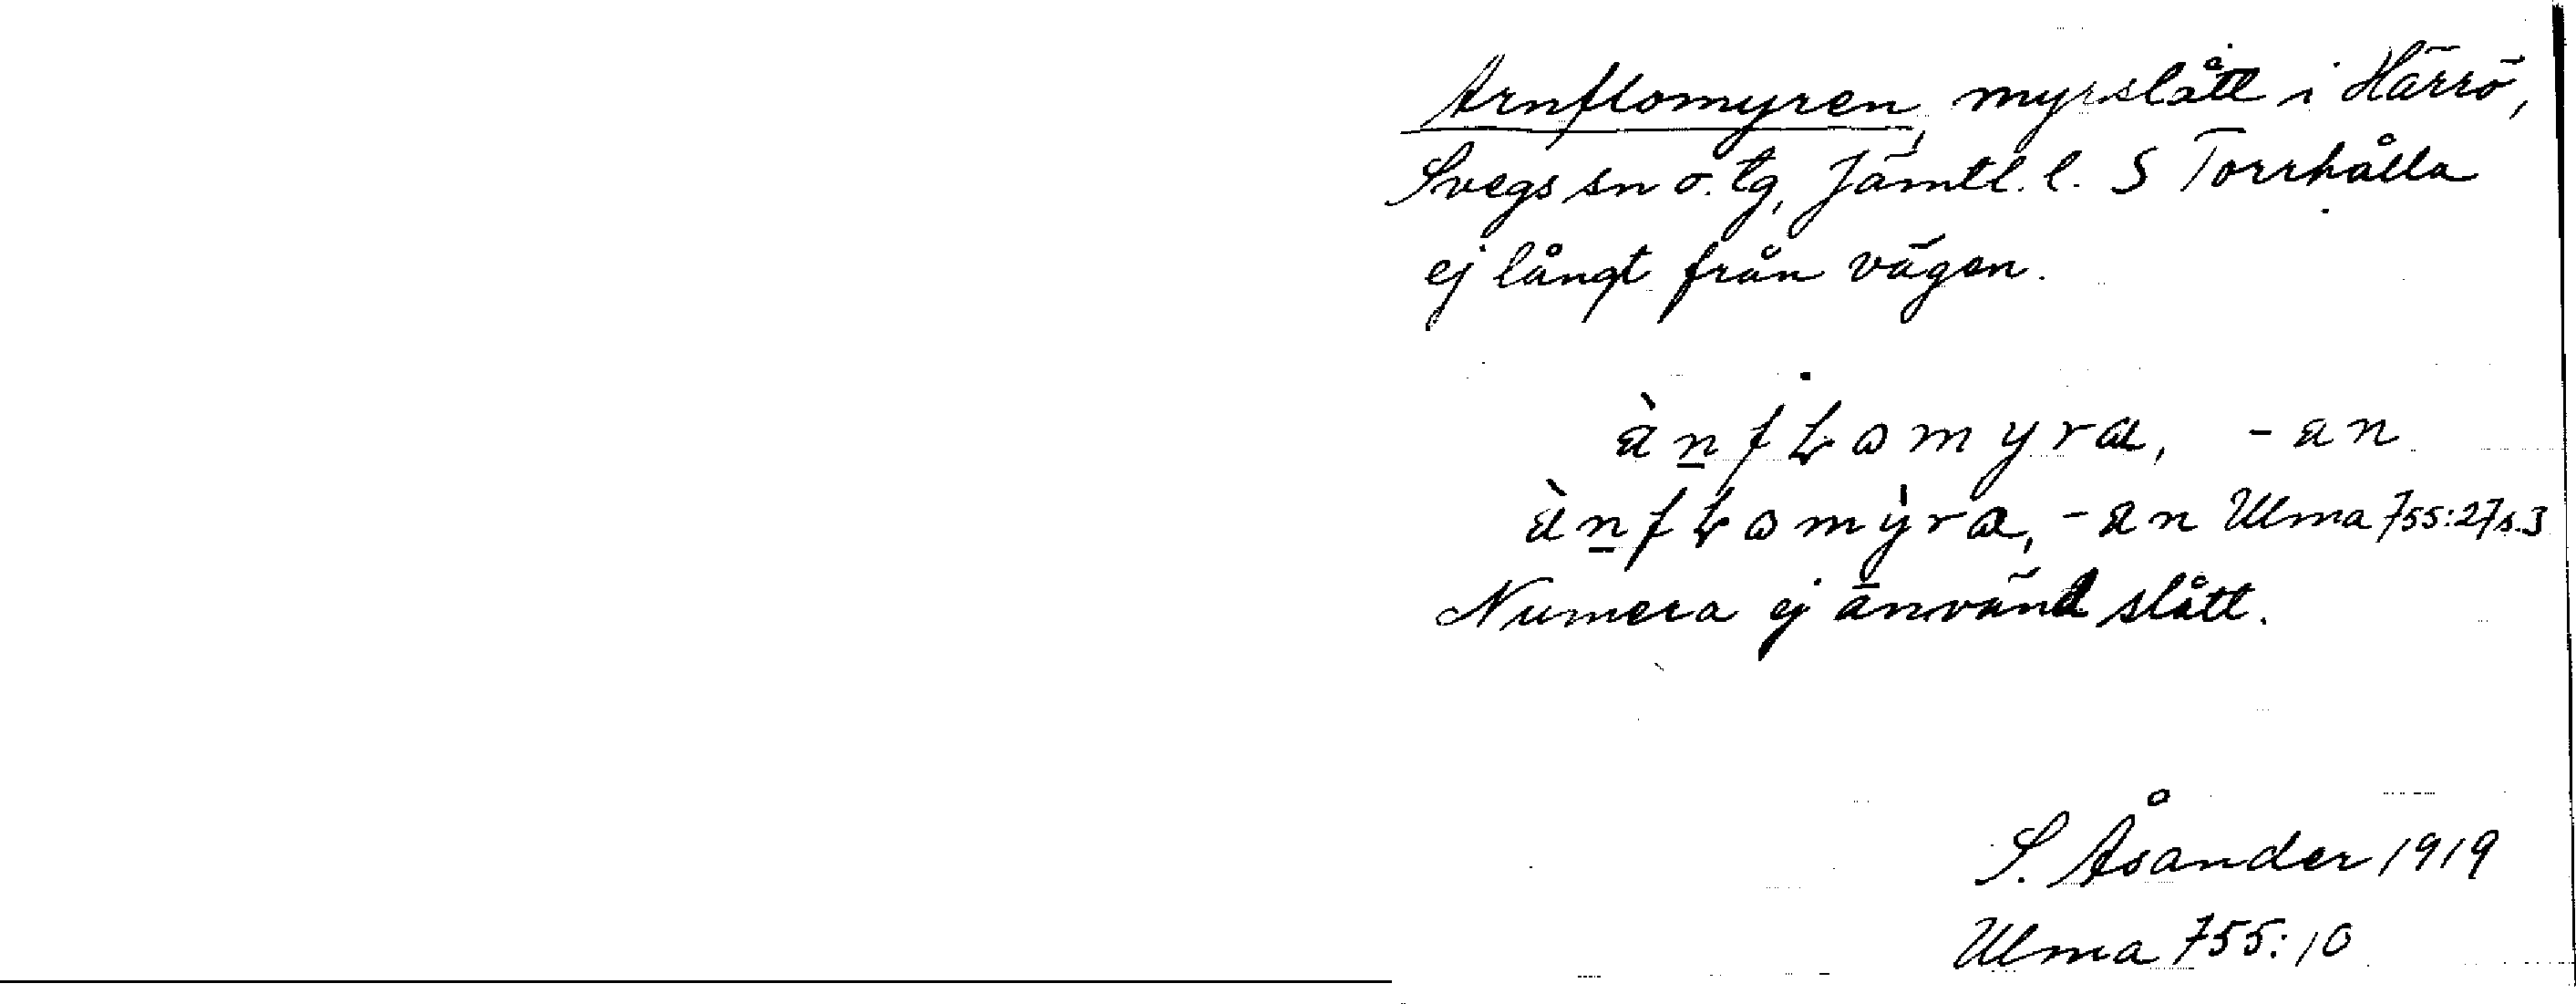 Arnflomyren, myrslått i Härrö,
Svegs sn o. tg, Jämtl. l. S Torrhålla
ej långt från vägen.
àn̲fꞭomyra, -an
àn̲fꞭomỳra, -an Ulma 755:27 s.3
Numera ej använd slått.
S. Åsander 1919
Ulma 755:10